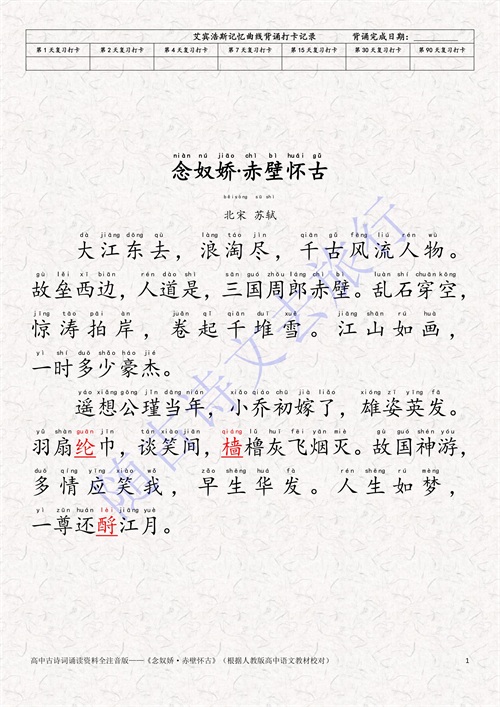 艾宾浩斯记忆曲线背诵打卡记录 背诵完成日期：
第 1 天复习打卡 第 2 天复习打卡 第 4 天复习打卡 第 7 天复习打卡 第 15 天复习打卡 第 30 天复习打卡 第 90 天复习打卡
niàn nú jiāo chì bì huái gǔ
念奴娇·赤壁怀古
běisòng sū shì
北宋 苏轼
dà jiāng dōng qù làng táo jìn qiān gǔ fēng liú rén wù
大江东去，浪淘尽，千古风流人物。
gù lěi xī biān rén dào shì sān guó zhōu láng chì bì luàn shí chuān kōng
故垒西边，人道是，三国周郎赤壁。乱石穿空，
jīng tāo pāi àn juǎn qǐ qiān duī xuě jiāng shān rú huà
惊涛拍岸，卷起千堆雪。江山如画，
yì shí duō shǎo háo jié
一时多少豪杰。
yáo xiǎng gōng jǐn dāng nián xiǎo qiáo chū jià liǎo xióng zī yīng fā
遥想公瑾当年，小乔初嫁了，雄姿英发。
yǔ shàn guān jīn tán xiào jiān qiáng lǔ huī fēi yān miè gù guó shén yóu
羽扇纶巾，谈笑间，樯橹灰飞烟灭。故国神游，
duō qíng yīng xiào wǒ zǎo shēng huá fà rén shēng rú mèng
多情应笑我，早生华发。人生如梦，
yì zūn huán lèi jiāng yuè
一尊还酹江月。
随古诗文去旅行
高中古诗词诵读资料全注音版——《念奴娇·赤壁怀古》（根据人教版高中语文教材校对） 1